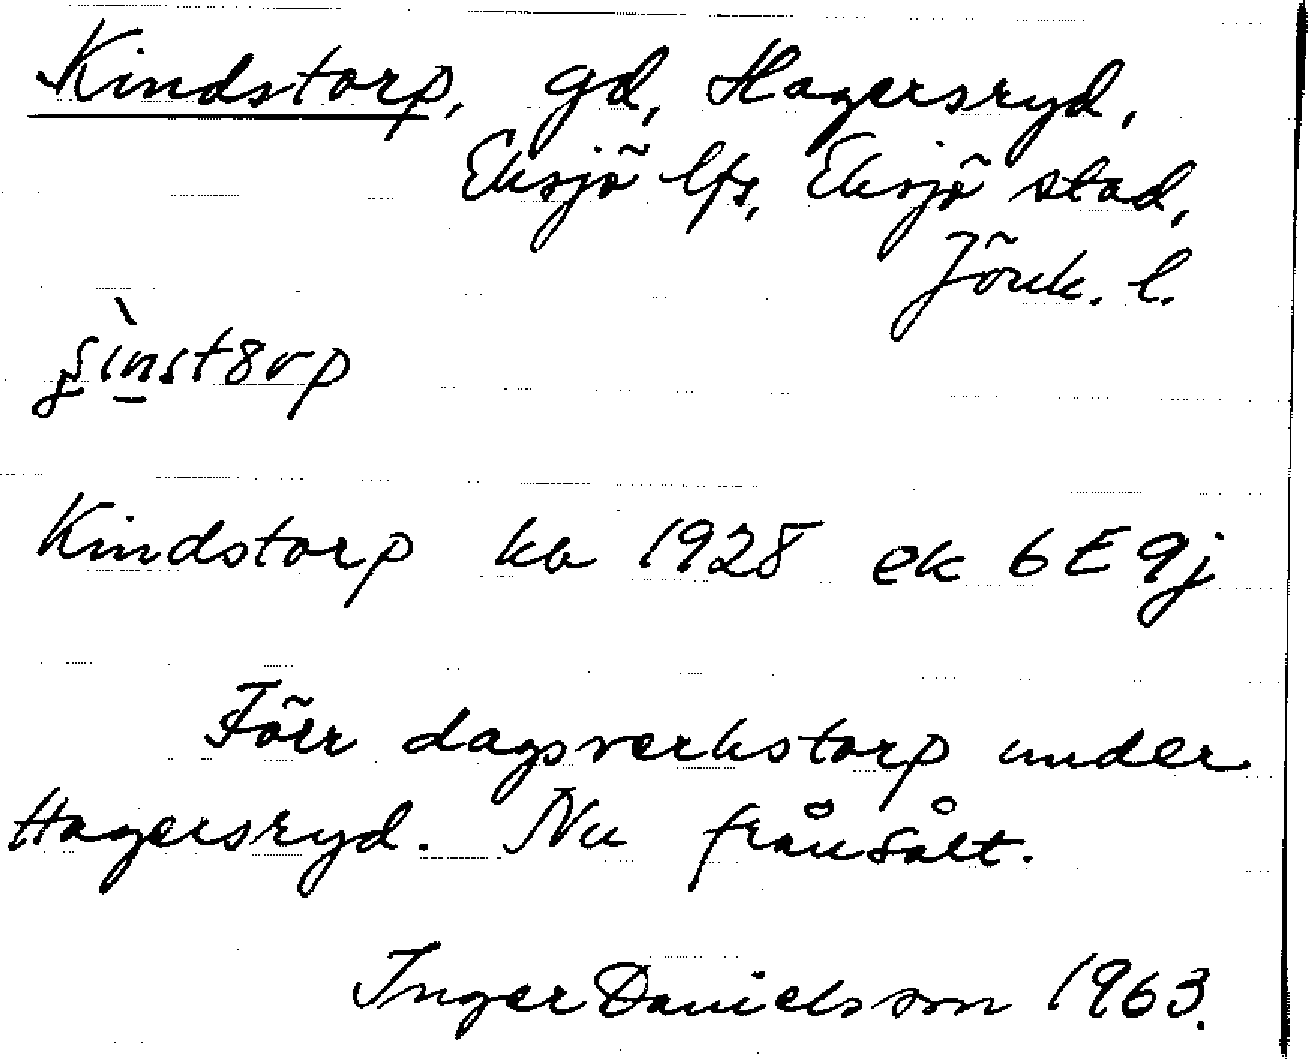 Kindstorp, gd, Hagersryd,
Eksjö lfs, Eksjö stad,
Jönk. l.
Kindstorp ka 1928 ek 6E9j
Förr dagsverkstorp under
Hagersryd. Nu frånsålt.
Inger Danielsson 1963.